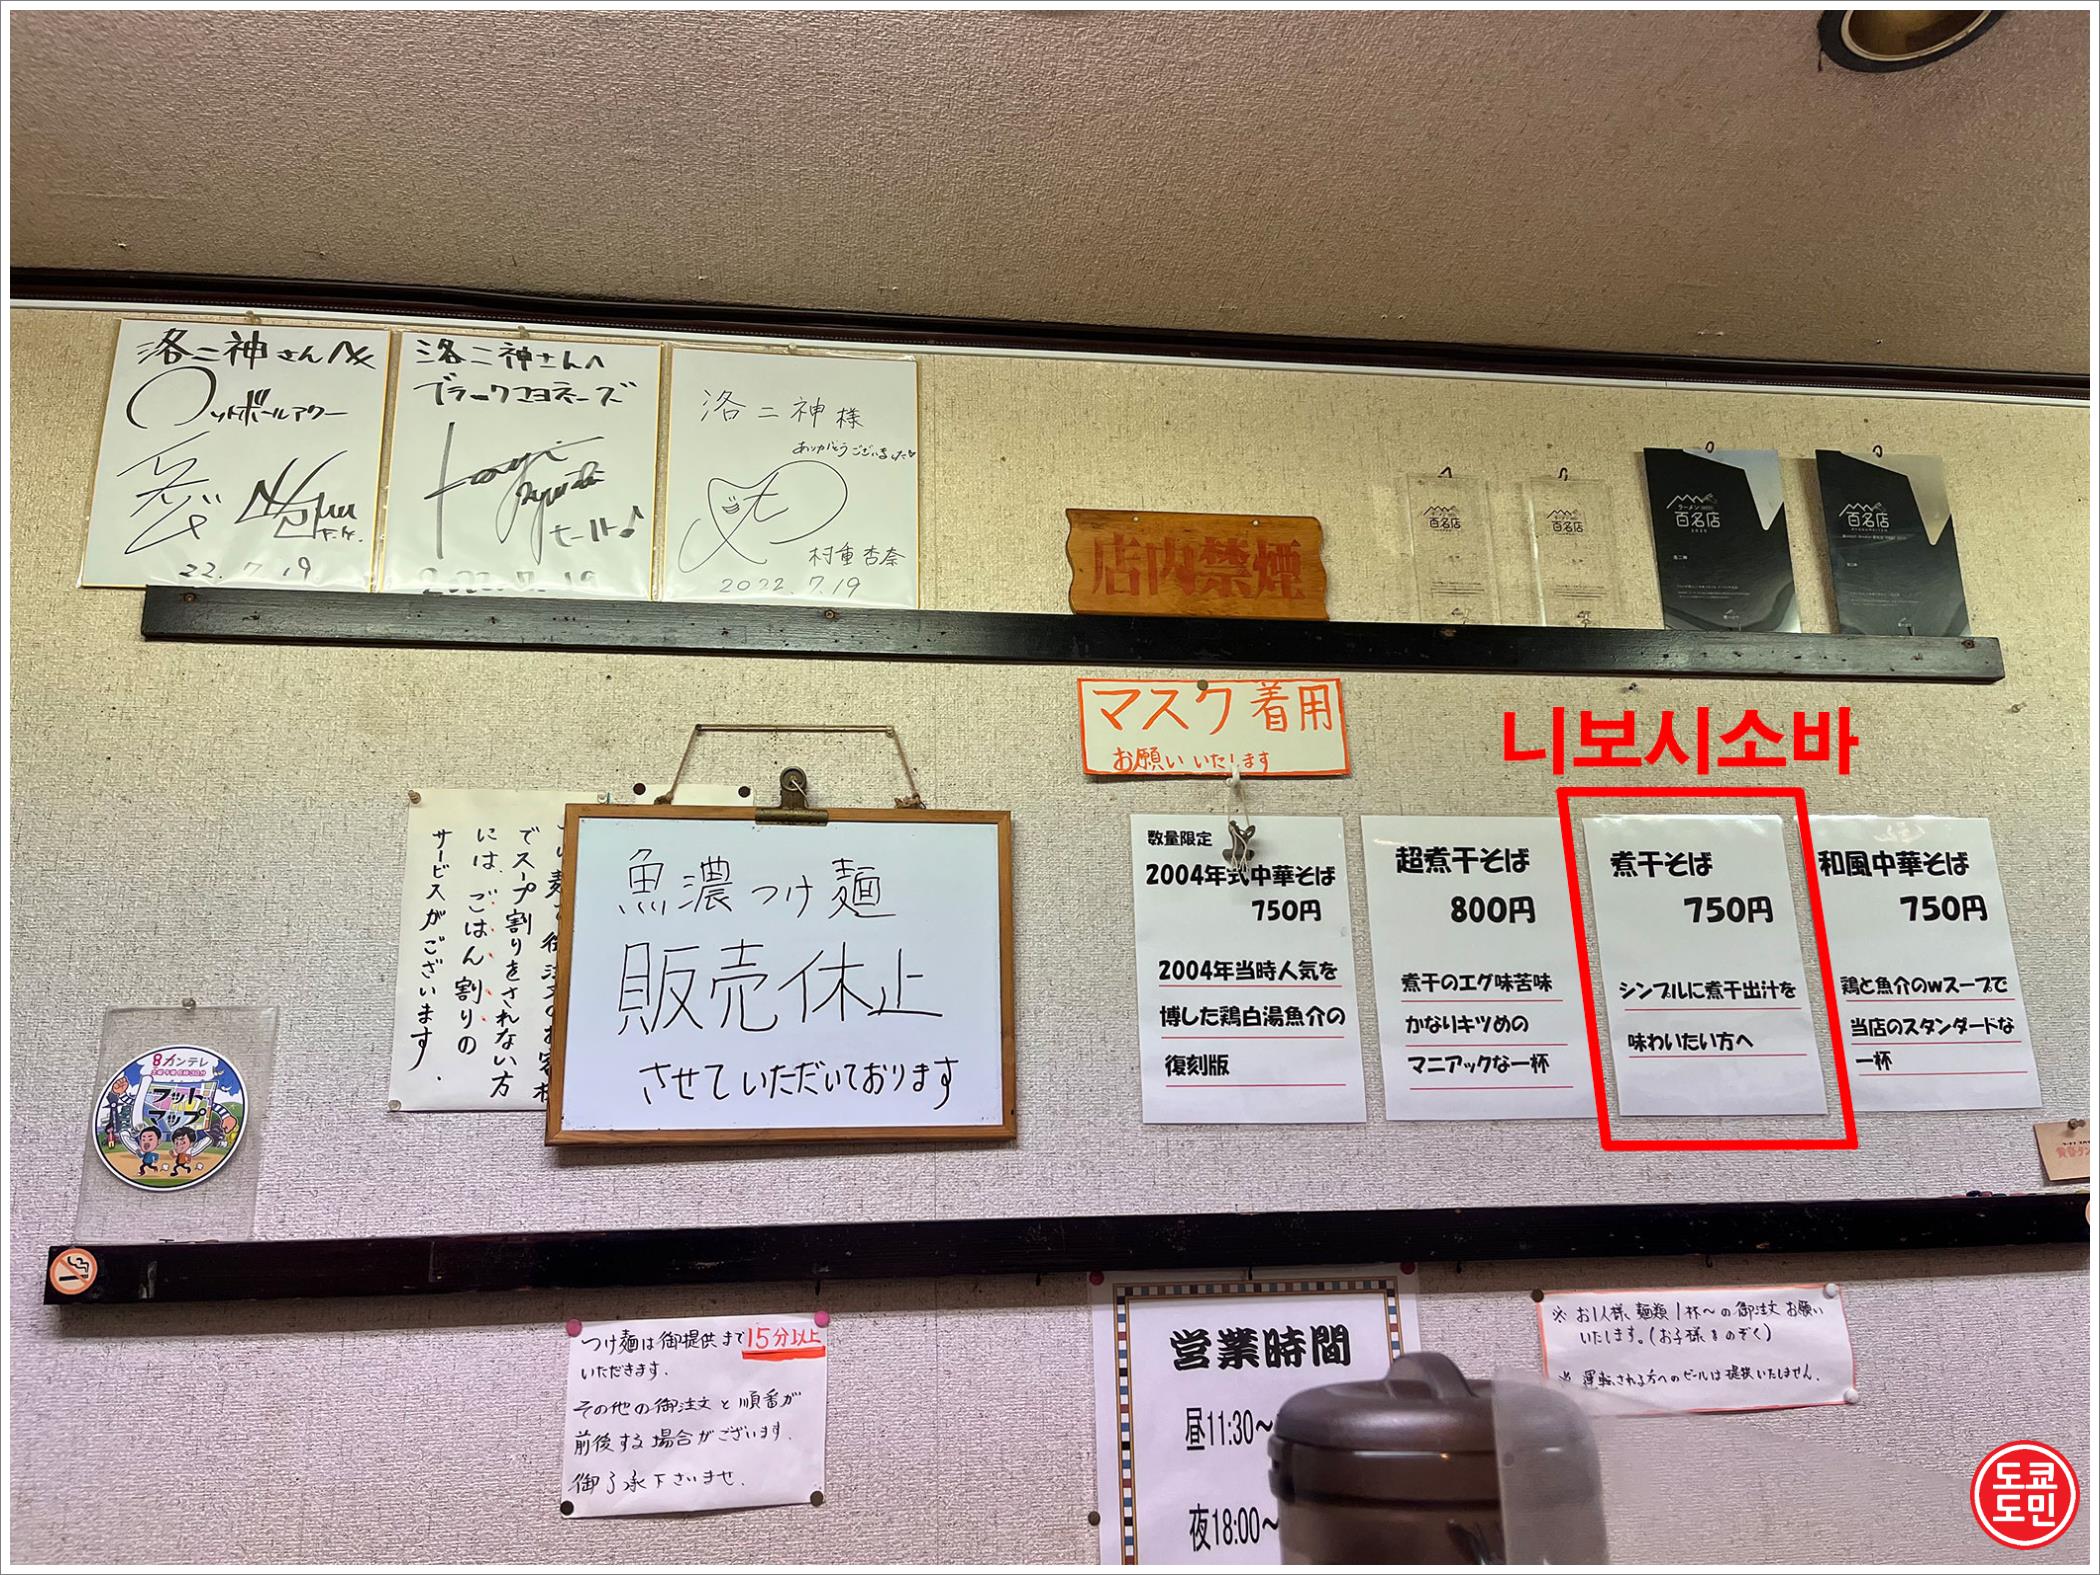 洛二神さん江
ロットボールアワー
22.7.19
洛二神さんへ
ブラックマヨネーズ
ヒート♪
2022.7.19
洛二神様
ありがとうございました
村重杏奈
2022.7.19
店内禁煙
百名店
百名店
ラーメン
百名店
2020
百名店
マスク着用
お願いいたします
니보시소바
でスープ割りをされない方
には、ごはん割りの
サービスがございます.
魚濃つけ麺
販売休止
させていただいております
数量限定
2004年式中華そば
750円
2004年当時人気を
博した鶏白湯魚介の
復刻版
超煮干そば
800円
煮干のエグ味苦味
かなりキツめの
マニアックな一杯
煮干そば
750円
シンプルに煮干出汁を
味わいたい方へ
和風中華そば
750円
鶏と魚介のwスープで
当店のスタンダードな
一杯
8カンテレ
フット
マップ
つけ麺は御提供まで15分以上
いただきます.
その他の御注文と順番が
前後する場合がございます.
御了承下さいませ.
営業時間
昼11:30~
夜18:00~
※お1人様、麺類1杯~の御注文お願い
いたします。(お子様をのぞく)
※運転される方へのビールは提供いたしません.
도쿄
도민